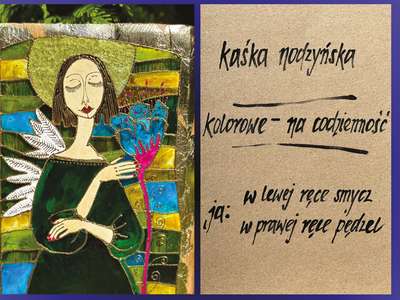 kaśka nodzyńska
kolorowe – na codzienność
ja: w lewej ręce smycz
w prawej ręce pędzel